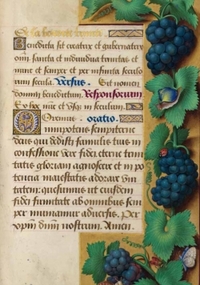 Benedicta sit creatrix et gubernatrix
omnia sancta et individua trinitas et
nunc et semper et per infinita secula
seculorum. Versus. Sit nomen
domini benedictum. Responsorium
Ex hoc nunc et usque in seculum.
Oremus. oratio.
Omnipotens sempiterne
deus qui dedisti famulis tuis in
confessione vere fidei eterne trini
tatis gloriam agnoscere et in po
tencia maiestatis adorare uni
tatem: quesumus ut eiusdem
fidei firmitate ab omnibus sem
per muniamur adversis. Per
xpm dnm nostrum. Amen.